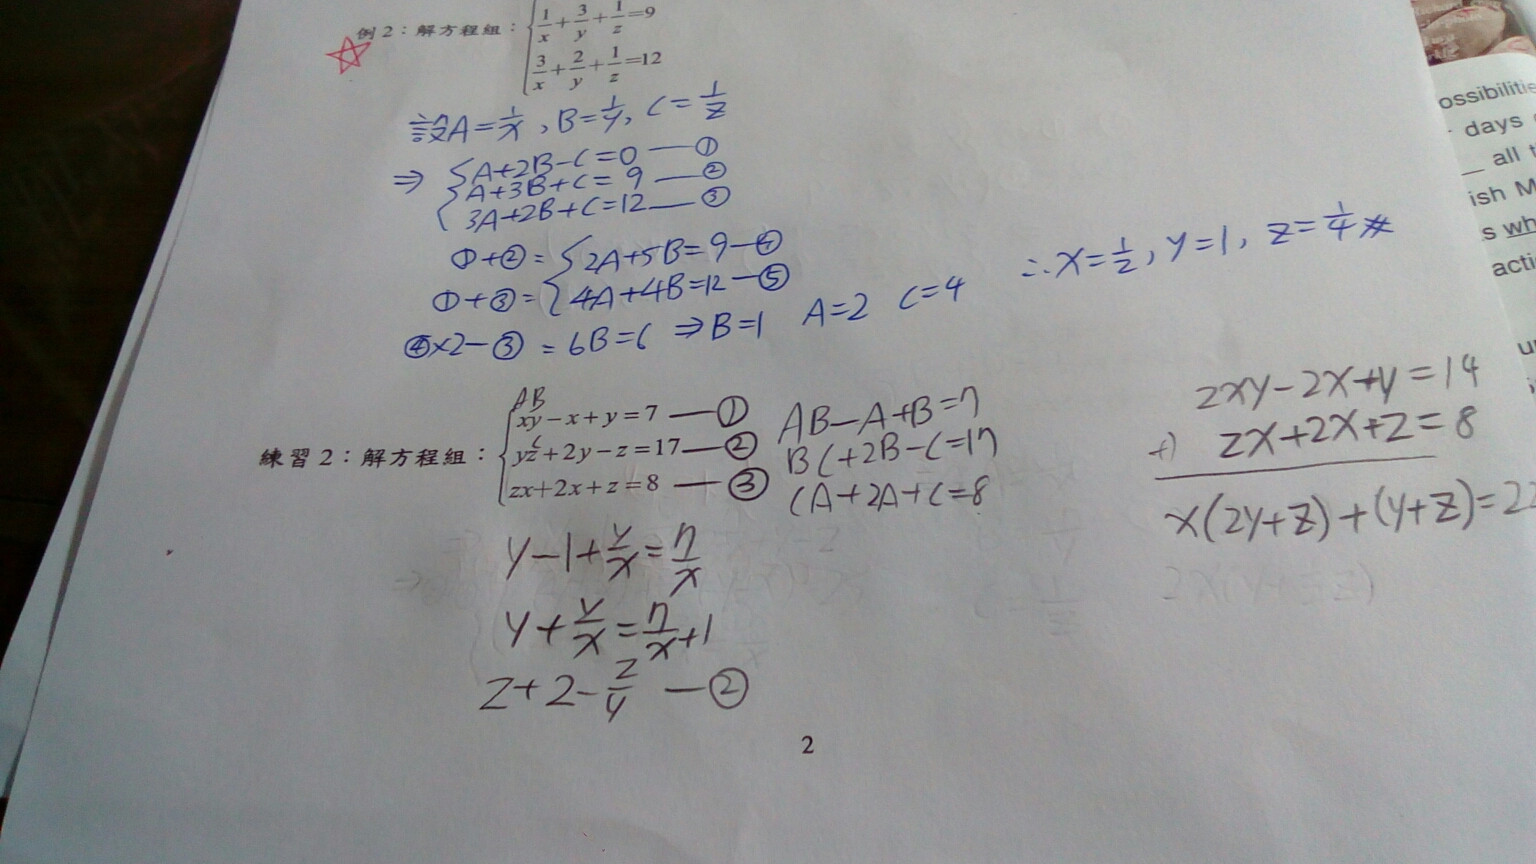 例2：解方程組：
1/x + 3/y + 1/z = 9
3/x + 2/y + 1/z = 12
設A = 1/x , B = 1/y, C = 1/z
⇒ { A+2B-C=0 — ①
A+3B+C=9 — ②
3A+2B+C=12 — ③
①+② = { 2A+5B=9 — ④
①+③ = { 4A+4B=12 — ⑤
④×2-③ = 6B=6 ⇒ B=1 A=2 C=4
∴ x=1/2, y=1, z=1/4 #
練習2：解方程組：
AB
xy-x+y=7 — ①
C
yz+2y-z=17 — ②
zx+2x+z=8 — ③
AB-A+B=7
BC+2B-C=17
CA+2A+C=8
y-1+y/x=7/x
y+y/x=7/x+1
z+2-z/y — ②
2xy-2x+y=14
+) zx+2x+z=8
x(2y+z)+(y+z)=22
2
ossibilitie
days
all t
ish M
s wh
acti